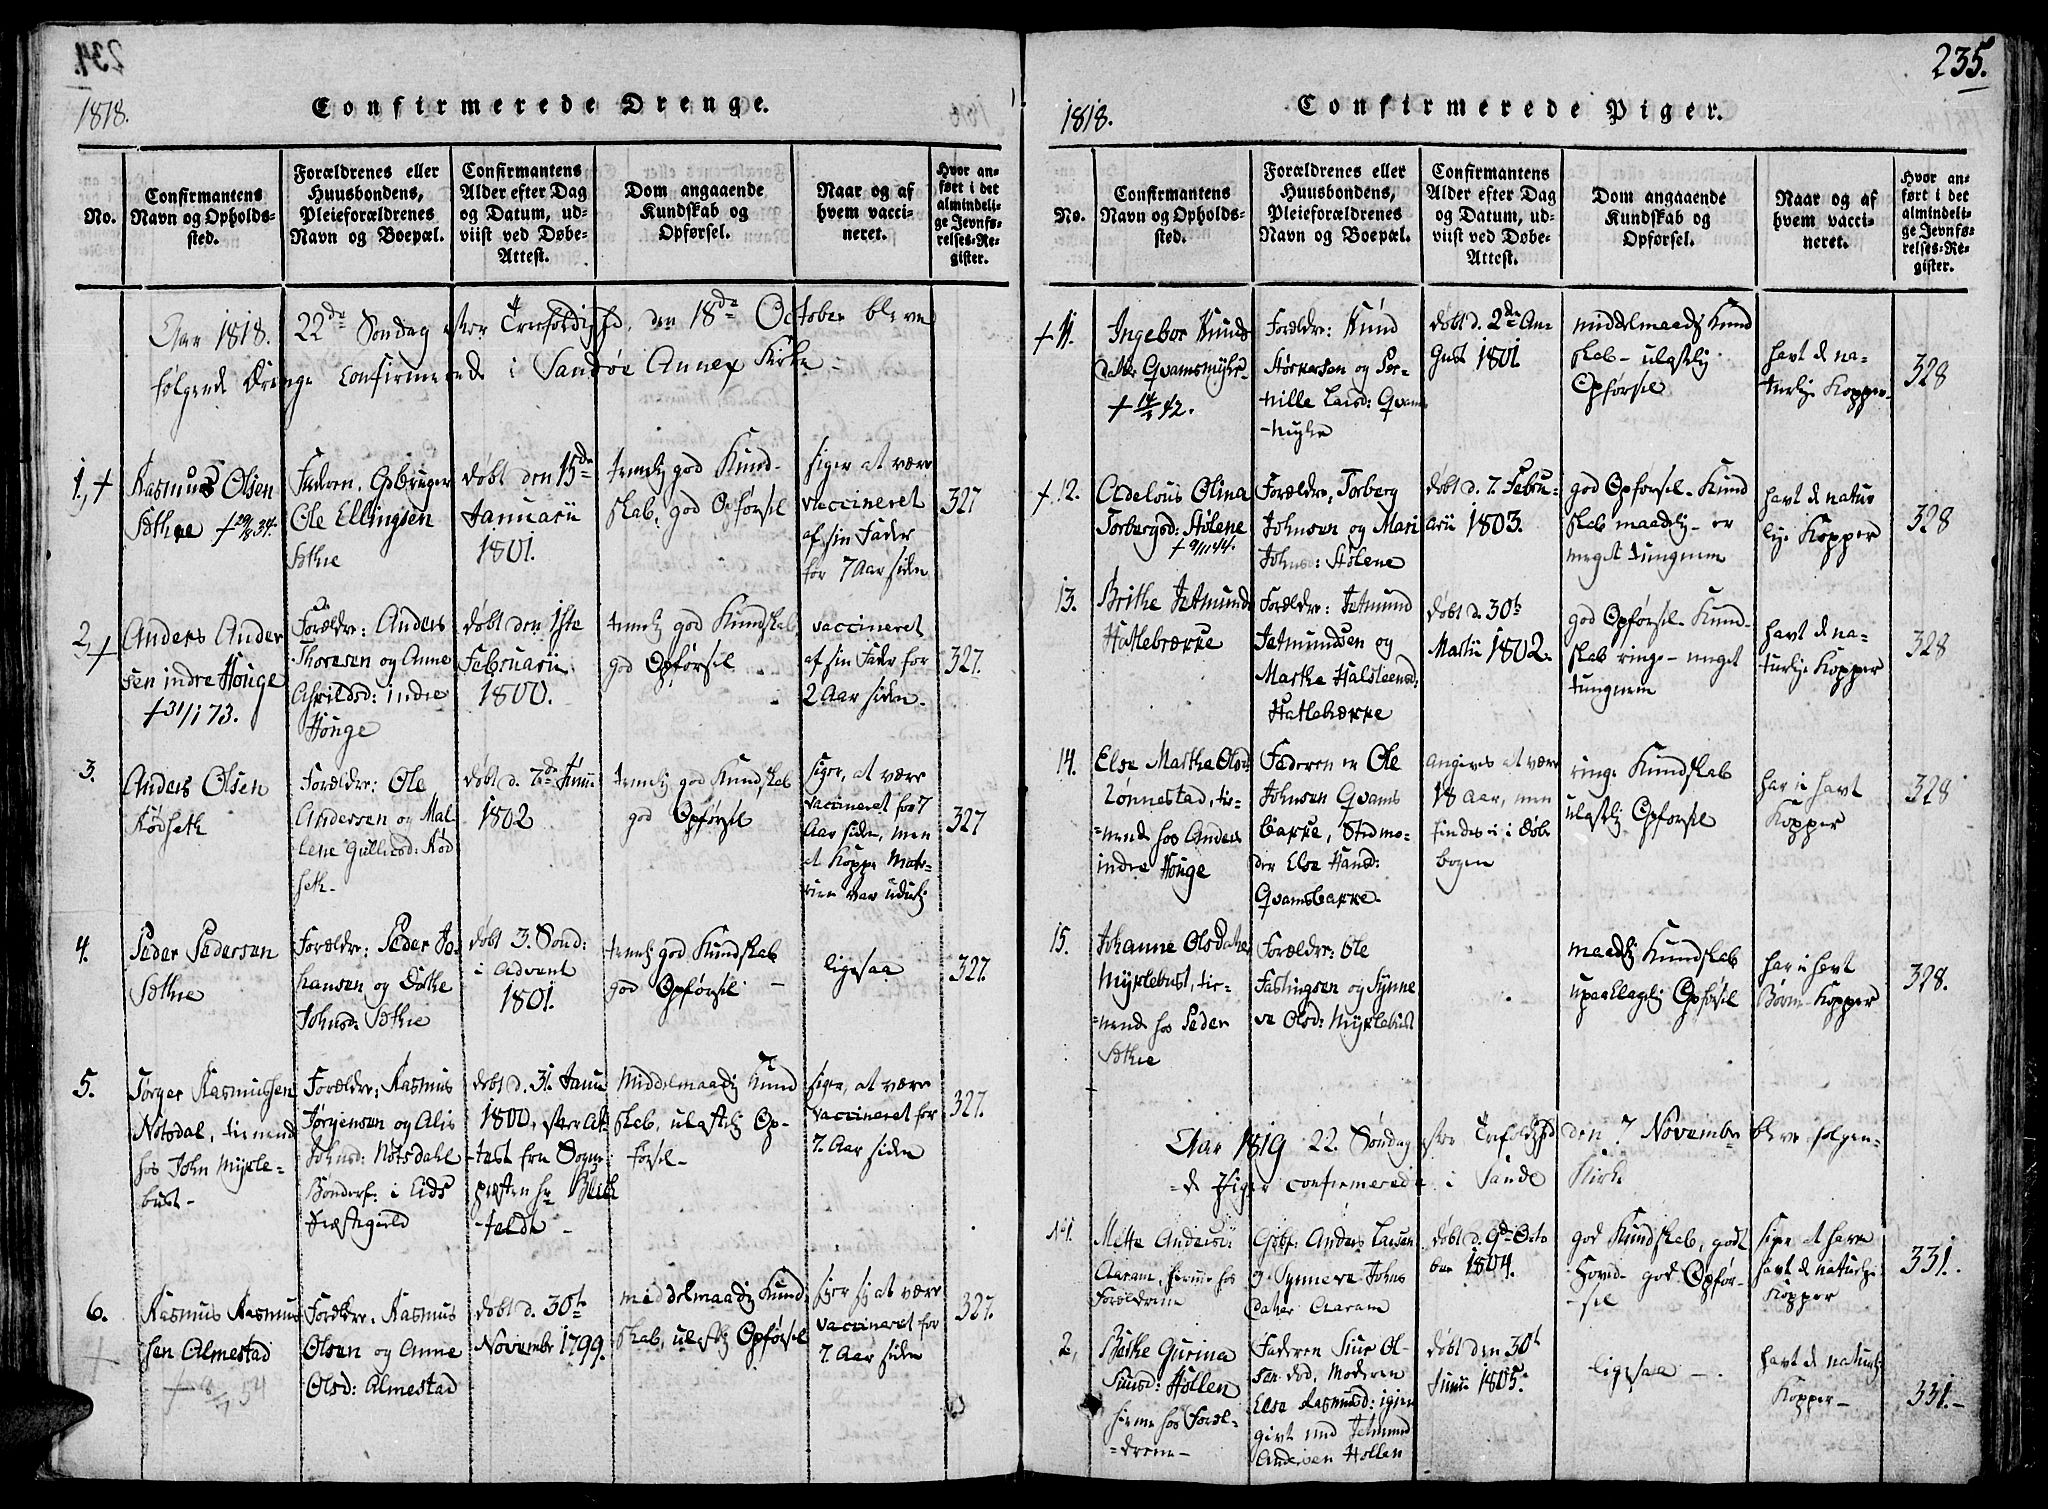 234.
1818.
Confirmerede Drenge.
No.
Confirmantens
Navn og Opholds-
sted.
Forældrenes eller
Huusbondens,
Pleieforældrenes
Navn og Boepæl.
Confirmantens
Alder efter Dag
og Datum, ud-
viist ved Døbe-
Attest.
Dom angaaende
Kundskab og
Opførsel.
Naar og af
hvem vacci-
neret.
Hvor an-
ført i det
almindeli-
ge Jevnfø-
relses-Re-
gister.
Aar 1818. 22de Søndag efter Trefoldighd. den 18de October bleve
følgende Drenge confirmerede i Sandøe Annex Kirke -
1, +
Rasmus Olsen
Søthre + 29/8 34.
Faderen, Gbruger
Ole Ellingsen
Sothre
døbt den 15de
Januarii
1801.
temelig god Kund-
skab, god Opførsel
siger at være
vaccineret
af sin Fader
for 7 Aar siden
327
2, +
Anders Ander
sen indre Houge
+ 31/1 73.
Forældre: Anders
Thoresen og Anne
indre
Houge
døbt den 1ste
Februarii
1800.
temelig god Kundskab
god Opførsel
vaccineret
af sin Fader for
2 Aar siden.
327.
3.
Anders Olsen
Rødseth
Forældre: Ole
Andersen og Mal
lene Gulliksd: Rød
seth.
døbt d. 7de Junii
1802
temelig god Kundskab
god Opførsel
siger, at være
vaccineret for 7
Aar siden, men
at Koppe Mate-
rien var udueli
327
4.
Peder Pedersen
Søthre
Forældre: Peder Jo-
hansen og Dothe
Johnsd: Søthre
døbt 3. Sønd:
i Advent
1801.
temelig god Kundskab
god Opførsel -
ligesaa
327.
5.
Jørgen Rasmussen
Notsdal, tienend
hos John Myxle-
bust -
Forældre: Rasmus
Jørgensen og Alis
Johnsd: Notsdahl
Bønderf: i Eids
Præstegield
døbt d. 31. Janu
1800, efter At-
test fra Sogne
præsten hr.
feldt -
Middelmaadig Kund
skab, ulastelig Op-
førsel -
siger, at være
vaccineret for
7. Aar siden
327.
6.
+
Rasmus Rasmus
sen Almestad
+ 8/7 54
Forældre. Rasmus
Olsen og Anne
Olsd: Almestad
døbt d. 30te
Novembr 1799.
middelmaadig Kund
skab, ulastelig Opførsel
siger sig at være
vaccineret for
7. Aar siden
327.
235.
1818.
Confirmerede Piger.
No.
Confirmantens
Navn og Opholds-
sted.
Forældrenes eller
Huusbondens,
Pleieforældrenes
Navn og Boepæl.
Confirmantens
Alder efter Dag
og Datum, ud-
viist ved Døbe-
Attest.
Dom angaaende
Kundskab og
Opførsel.
Naar og af
hvem vacci-
neret.
Hvor an-
ført i det
almindeli-
ge Jevnfø-
relses-Re-
gister.
+ 11.
Ingebor Knuds
datter Qvamsmyhr-
Forældre: Knud
Størkersen og Per-
nille Larsd: Qvams
-myhr
døbt d. 2de Au-
gust 1801
middelmaadig Kund
skab - ulastelig
Opførsel
havt de na-
turlige Kopper.
328
+ 12.
Adelous Olina
Torbergsd: Stølene
+ 9/11 44.
Forældre, Torberg
Johnsen og Mari
Johnsd: Stølene
døbt d. 7. Febru-
arii 1803.
god Opførsel. Kund
skab maadelig - er
meget tungnem
havt de natur
lige Kopper
328
13.
Brithe Jetmunds
Hatlebrække
Forældre: Jetmund
Jetmundsen og
Marthe Halsteensd:
Hatlebrække
døbt d. 30te
Martii 1802.
god Opførsel. Kund-
skab ringe - meget
tungnem
havt de na-
turlige Kopper
328
14.
Else Marthe Olsd:
Lønnestad, tie-
nende hos Anders
indre Houge
Faderen er Ole
Johnsen Qvams
bakke, Stedmo-
der Else Hansd:
Qvamsbakke.
angives at være
18 aar, men
findes ei i Døbe
bogen
ringe Kundskab
ulastelig Opførsel
har ei havt
Kopper
328
15.
Johanne Olsdatter
Myxlebust, tie-
nende hos Peder
Søthre
Forældre: Ole
Fastingsen og Synne
ve Olsd: Myxlebust
maadelig Kundskab
upaaklagelig Opførsel
har ei havt
Børne Kopper
328.
Aar 1819 22. Søndag efter Trefoldighd den 7 November bleve følgen-
de Piger confirmerede i Sande Kirke
No 1.
Mette Andersd:
Aaram, hiemme hos
Forældrene
Gbf: Anders Larsen
og Synneve Johns
datter Aaram
døbt d. 9de Octo
ber 1804.
god Kundskab, godt
Hoved god Opfør-
sel
siger at have
havt de naturlige
Kopper
331.
2,
Berthe Gurina
Siursd: Hollen
hieme hos Foræl-
drene -
Faderen Siur Ol-
sen død, Moderen
Else Rasmusd: igien
givt med Jetmund
Andersen Hollen
døbt den 30te
Junii 1805.
ligesaa -.
havt de naturlig
Kopper -
331.-